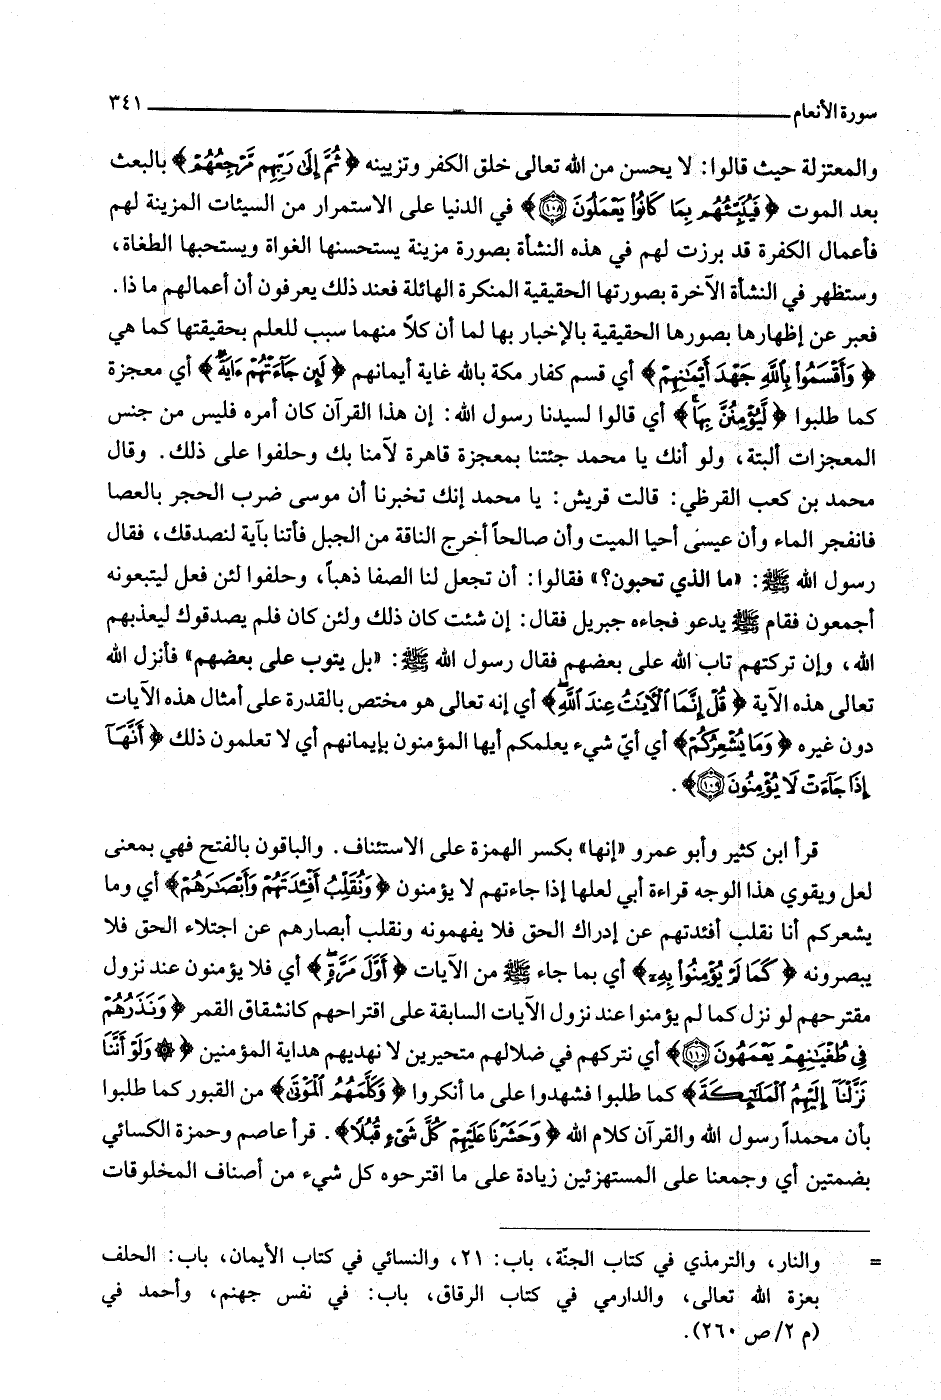 سورة الأنعام ٣٤١
والمعتزلة حيث قالوا: لا يحسن من الله تعالى خلق الكفر وتزيينه ﴿ثُمَّ إِلَىٰ رَبِّهِم مَّرْجِعُهُمْ﴾ بالبعث
بعد الموت ﴿فَيُنَبِّئُهُم بِمَا كَانُوا۟ يَعْمَلُونَ ١٠٨﴾ في الدنيا على الاستمرار من السيئات المزينة لهم
فأعمال الكفرة قد برزت لهم في هذه النشأة بصورة مزينة يستحسنها الغواة ويستحبها الطغاة،
وستظهر في النشأة الآخرة بصورتها الحقيقية المنكرة الهائلة فعند ذلك يعرفون أن أعمالهم ما ذا.
فعبر عن إظهارها بصورها الحقيقية بالإخبار بها لما أن كلاً منهما سبب للعلم بحقيقتها كما هي
﴿وَأَقْسَمُوا۟ بِٱللَّهِ جَهْدَ أَيْمَـٰنِهِمْ﴾ أي قسم كفار مكة بالله غاية أيمانهم ﴿لَئِن جَآءَتْهُمْ ءَايَةٌ﴾ أي معجزة
كما طلبوا ﴿لَّيُؤْمِنُنَّ بِهَا﴾ أي قالوا لسيدنا رسول الله: إن هذا القرآن كان أمره فليس من جنس
المعجزات ألبتة، ولو أنك يا محمد جئتنا بمعجزة قاهرة لآمنا بك وحلفوا على ذلك. وقال
محمد بن كعب القرظي: قالت قريش: يا محمد إنك تخبرنا أن موسى ضرب الحجر بالعصا
فانفجر الماء وأن عيسى أحيا الميت وأن صالحاً أخرج الناقة من الجبل فأتنا بآية لنصدقك، فقال
رسول الله ﷺ: «ما الذي تحبون؟» فقالوا: أن تجعل لنا الصفا ذهباً، وحلفوا لئن فعل ليتبعونه
أجمعون فقام ﷺ يدعو فجاءه جبريل فقال: إن شئت كان ذلك ولئن كان فلم يصدقوك ليعذبهم
الله، وإن تركتهم تاب الله على بعضهم فقال رسول الله ﷺ: «بل يتوب على بعضهم» فأنزل الله
تعالى هذه الآية ﴿قُلْ إِنَّمَا ٱلْـَٔايَـٰتُ عِندَ ٱللَّهِ﴾ أي إنه تعالى هو مختص بالقدرة على أمثال هذه الآيات
دون غيره ﴿وَمَا يُشْعِرُكُمْ﴾ أي أيّ شيء يعلمكم أيها المؤمنون بإيمانهم أي لا تعلمون ذلك ﴿أَنَّهَآ
إِذَا جَآءَتْ لَا يُؤْمِنُونَ ١٠٩﴾.
قرأ ابن كثير وأبو عمرو «إنها» بكسر الهمزة على الاستئناف. والباقون بالفتح فهي بمعنى
لعل ويقوي هذا الوجه قراءة أبي لعلها إذا جاءتهم لا يؤمنون ﴿وَنُقَلِّبُ أَفْـِٔدَتَهُمْ وَأَبْصَـٰرَهُمْ﴾ أي وما
يشعركم أنا نقلب أفئدتهم عن إدراك الحق فلا يفهمونه ونقلب أبصارهم عن اجتلاء الحق فلا
يبصرونه ﴿كَمَا لَمْ يُؤْمِنُوا۟ بِهِۦ﴾ أي بما جاء ﷺ من الآيات ﴿أَوَّلَ مَرَّةٍ﴾ أي فلا يؤمنون عند نزول
مقترحهم لو نزل كما لم يؤمنوا عند نزول الآيات السابقة على اقتراحهم كانشقاق القمر ﴿وَنَذَرُهُمْ
فِى طُغْيَـٰنِهِمْ يَعْمَهُونَ ١١٠﴾ أي نتركهم في ضلالهم متحيرين لا نهديهم هداية المؤمنين ﴿۞ وَلَوْ أَنَّنَا
نَزَّلْنَآ إِلَيْهِمُ ٱلْمَلَـٰٓئِكَةَ﴾ كما طلبوا فشهدوا على ما أنكروا ﴿وَكَلَّمَهُمُ ٱلْمَوْتَىٰ﴾ من القبور كما طلبوا
بأن محمداً رسول الله والقرآن كلام الله ﴿وَحَشَرْنَا عَلَيْهِمْ كُلَّ شَىْءٍ قُبُلًا﴾. قرأ عاصم وحمزة الكسائي
بضمتين أي وجمعنا على المستهزئين زيادة على ما اقترحوه كل شيء من أصناف المخلوقات
= والنار، والترمذي في كتاب الجنّة، باب: ٢١، والنسائي في كتاب الأيمان، باب: الحلف
بعزة الله تعالى، والدارمي في كتاب الرقاق، باب: في نفس جهنم، وأحمد في
(م ٢/ ص ٢٦٠).